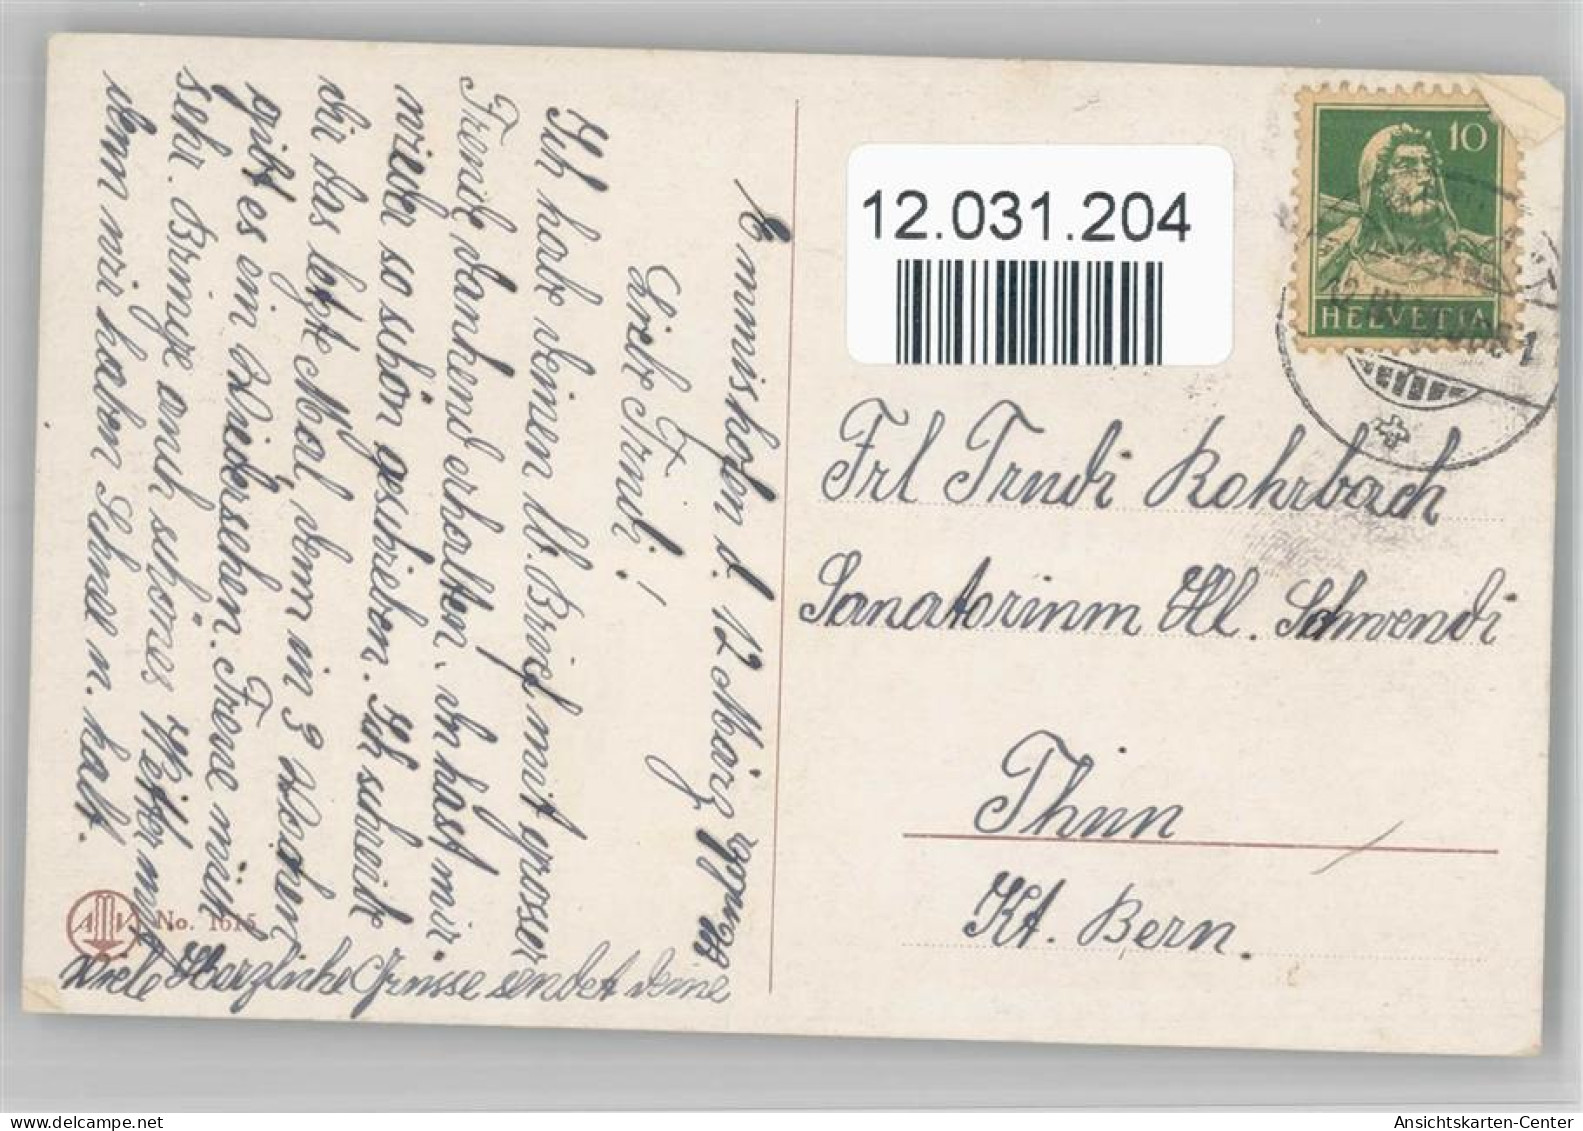 Emmishofen d. 12 März 1928
Lieb Trudi!
Ich habe deinen lb. Brief mit grosser
Freude dankend erhalten, du hast mir
wieder so schön geschrieben. Ich schreib
dir das letzte Mal, denn in 3 Wochen
gibt es ein Wiedersehen. Freue mich
sehr.
auch schönes Wetter
denn wir haben Schnee u. kalt.
Viele Herzliche Grüsse sendet deine
No. 1615
12.031.204
10
HELVETIA
Frl Trudi Rohrbach
Sanatorium Hl. Schwendi
Thun
Kt. Bern.
Ansichtskarten-Center